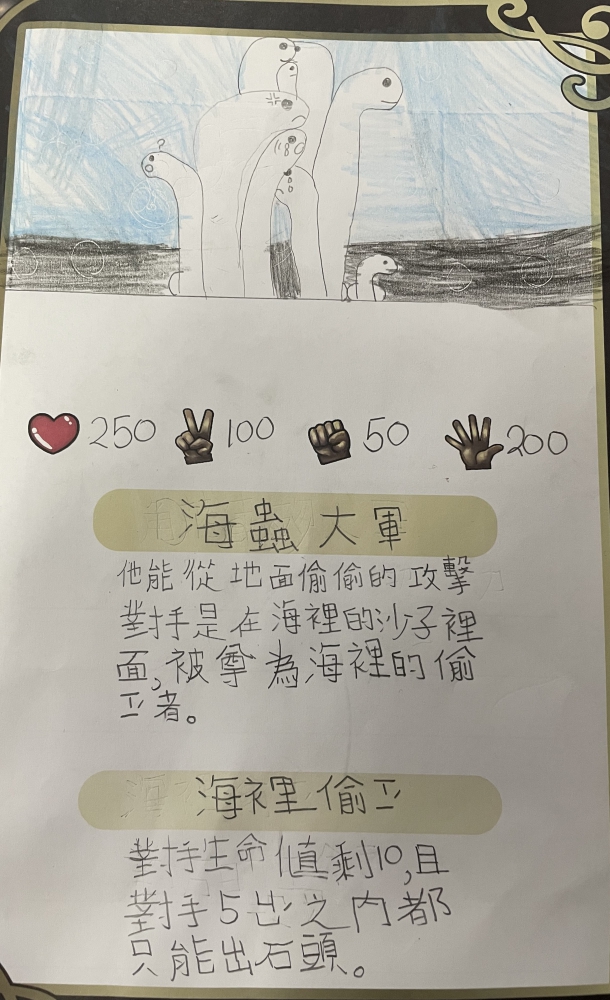 ?
250 100 50 200
海蟲大軍
他能從地面偷偷的攻擊
對手是在海裡的沙子裡
面,被尊為海裡的偷
ㄍㄨ者。
海裡偷ㄍㄨ
對手生命值剩10,且
對手5出之內都
只能出石頭。